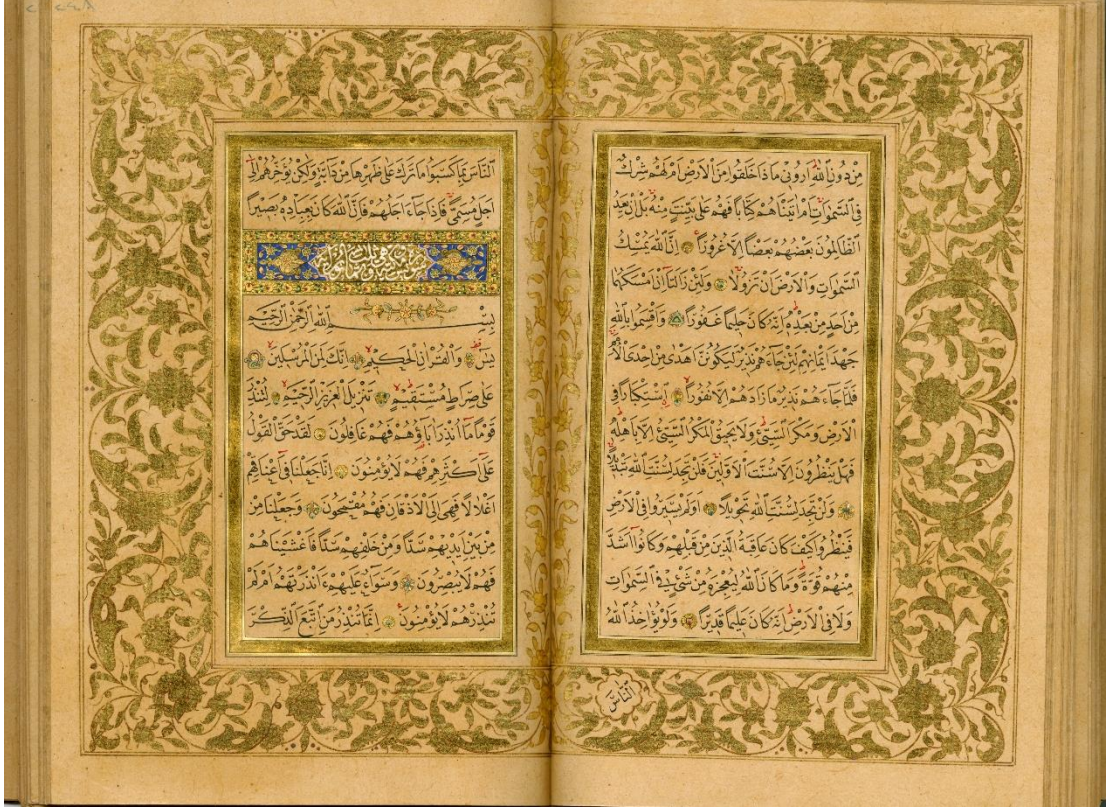 مِنْ دُونِ اللّٰهِ اَرُونِى مَاذَا خَلَقُوا مِنَ الْاَرْضِ اَمْ لَهُمْ شِرْكٌ
فِى السَّمٰوَاتِ اَمْ اٰتَيْنَاهُمْ كِتَابًا فَهُمْ عَلٰى بَيِّنَتٍ مِنْهُ بَلْ اِنْ يَعِدُ
الظَّالِمُونَ بَعْضُهُمْ بَعْضًا اِلَّا غُرُورًا اِنَّ اللّٰهَ يُمْسِكُ
السَّمٰوَاتِ وَالْاَرْضَ اَنْ تَزُولَا وَلَئِنْ زَالَتَا اِنْ اَمْسَكَهُمَا
مِنْ اَحَدٍ مِنْ بَعْدِهِ اِنَّهُ كَانَ حَلِيمًا غَفُورًا وَاَقْسَمُوا بِاللّٰهِ
جَهْدَ اَيْمَانِهِمْ لَئِنْ جَاءَهُمْ نَذِيرٌ لَيَكُونُنَّ اَهْدٰى مِنْ اِحْدَى الْاُمَمِ
فَلَمَّا جَاءَهُمْ نَذِيرٌ مَا زَادَهُمْ اِلَّا نُفُورًا اِسْتِكْبَارًا فِى
الْاَرْضِ وَمَكْرَ السَّيِّئِ وَلَا يَحِيقُ الْمَكْرُ السَّيِّئُ اِلَّا بِاَهْلِهِ
فَهَلْ يَنْظُرُونَ اِلَّا سُنَّتَ الْاَوَّلِينَ فَلَنْ تَجِدَ لِسُنَّتِ اللّٰهِ تَبْدِيلًا
وَلَنْ تَجِدَ لِسُنَّتِ اللّٰهِ تَحْوِيلًا اَوَلَمْ يَسِيرُوا فِى الْاَرْضِ
فَيَنْظُرُوا كَيْفَ كَانَ عَاقِبَةُ الَّذِينَ مِنْ قَبْلِهِمْ وَكَانُوا اَشَدَّ
مِنْهُمْ قُوَّةً وَمَا كَانَ اللّٰهُ لِيُعْجِزَهُ مِنْ شَيْءٍ فِى السَّمٰوَاتِ
وَلَا فِى الْاَرْضِ اِنَّهُ كَانَ عَلِيمًا قَدِيرًا وَلَوْ يُؤَاخِذُ اللّٰهُ
النَّاسَ
النَّاسَ بِمَا كَسَبُوا مَا تَرَكَ عَلٰى ظَهْرِهَا مِنْ دَابَّةٍ وَلٰكِنْ يُؤَخِّرُهُمْ اِلٰى
اَجَلٍ مُسَمًّى فَاِذَا جَاءَ اَجَلُهُمْ فَاِنَّ اللّٰهَ كَانَ بِعِبَادِهِ بَصِيرًا
سورة يس مكية وهى ثلث وثمانون اية
بِسْمِ اللّٰهِ الرَّحْمٰنِ الرَّحِيمِ
يٰسٓ وَالْقُرْاٰنِ الْحَكِيمِ اِنَّكَ لَمِنَ الْمُرْسَلِينَ
عَلٰى صِرَاطٍ مُسْتَقِيمٍ تَنْزِيلَ الْعَزِيزِ الرَّحِيمِ لِتُنْذِرَ
قَوْمًا مَا اُنْذِرَ اٰبَاؤُهُمْ فَهُمْ غَافِلُونَ لَقَدْ حَقَّ الْقَوْلُ
عَلٰى اَكْثَرِهِمْ فَهُمْ لَا يُؤْمِنُونَ اِنَّا جَعَلْنَا فِى اَعْنَاقِهِمْ
اَغْلَالًا فَهِىَ اِلَى الْاَذْقَانِ فَهُمْ مُقْمَحُونَ وَجَعَلْنَا مِنْ
بَيْنِ اَيْدِيهِمْ سَدًّا وَمِنْ خَلْفِهِمْ سَدًّا فَاَغْشَيْنَاهُمْ
فَهُمْ لَا يُبْصِرُونَ وَسَوَاءٌ عَلَيْهِمْ ءَاَنْذَرْتَهُمْ اَمْ لَمْ
تُنْذِرْهُمْ لَا يُؤْمِنُونَ اِنَّمَا تُنْذِرُ مَنِ اتَّبَعَ الذِّكْرَ